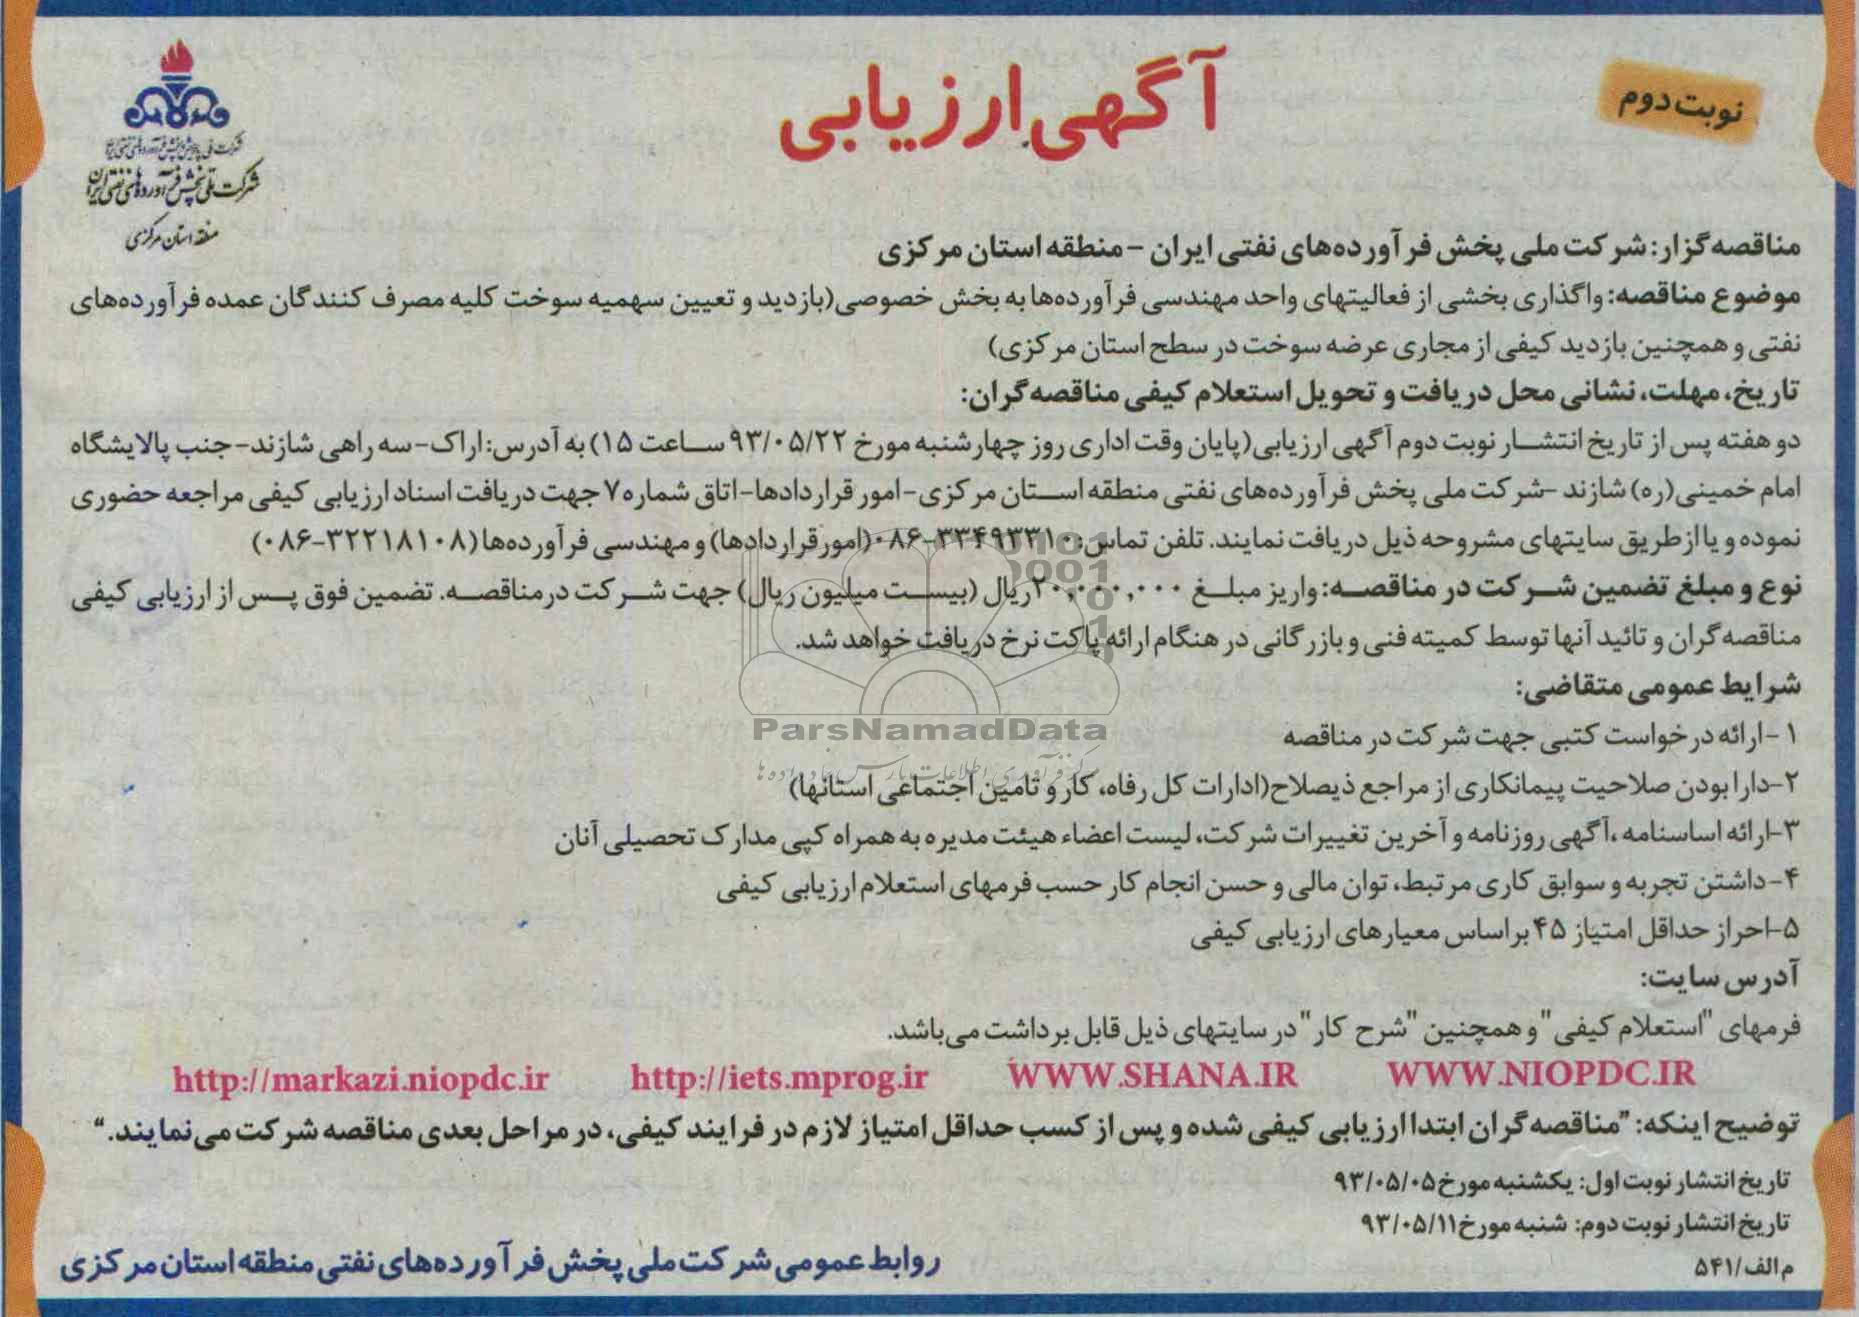 نوبت دوم
آگهی ارزیابی
شرکت ملی پالایش و پخش فرآورده‌های نفتی ایران
شرکت ملی پخش فرآورده‌های نفتی ایران
منطقه استان مرکزی
مناقصه‌گزار: شرکت ملی پخش فرآورده‌های نفتی ایران - منطقه استان مرکزی
موضوع مناقصه: واگذاری بخشی از فعالیتهای واحد مهندسی فرآورده‌ها به بخش خصوصی(بازدید و تعیین سهمیه سوخت کلیه مصرف کنندگان عمده فرآورده‌های
نفتی و همچنین بازدید کیفی از مجاری عرضه سوخت در سطح استان مرکزی)
تاریخ، مهلت، نشانی محل دریافت و تحویل استعلام کیفی مناقصه‌گران:
دو هفته پس از تاریخ انتشار نوبت دوم آگهی ارزیابی(پایان وقت اداری روز چهارشنبه مورخ ۹۳/۰۵/۲۲ ساعت ۱۵) به آدرس: اراک-سه راهی شازند-جنب پالایشگاه
امام خمینی(ره) شازند -شرکت ملی پخش فرآورده‌های نفتی منطقه استان مرکزی-امور قراردادها-اتاق شماره ۷ جهت دریافت اسناد ارزیابی کیفی مراجعه حضوری
نموده و یا از طریق سایتهای مشروحه ذیل دریافت نمایند. تلفن تماس: ۳۳۴۹۳۳۱۰-۰۸۶(امور قراردادها) و مهندسی فرآورده‌ها (۳۲۲۱۸۱۰۸-۰۸۶)
نوع و مبلغ تضمین شرکت در مناقصه: واریز مبلغ ۲۰,۰۰۰,۰۰۰ ریال (بیست میلیون ریال) جهت شرکت در مناقصه. تضمین فوق پس از ارزیابی کیفی
مناقصه‌گران و تائید آنها توسط کمیته فنی و بازرگانی در هنگام ارائه پاکت نرخ دریافت خواهد شد.
شرایط عمومی متقاضی:
ParsNamadData
مرکز فرآوری اطلاعات پارس نماد داده‌ها
۱-ارائه درخواست کتبی جهت شرکت در مناقصه
۲-دارا بودن صلاحیت پیمانکاری از مراجع ذیصلاح(ادارات کل رفاه، کار و تامین اجتماعی استانها)
۳-ارائه اساسنامه ،آگهی روزنامه و آخرین تغییرات شرکت، لیست اعضاء هیئت مدیره به همراه کپی مدارک تحصیلی آنان
۴-داشتن تجربه و سوابق کاری مرتبط، توان مالی و حسن انجام کار حسب فرمهای استعلام ارزیابی کیفی
۵-احراز حداقل امتیاز ۴۵ براساس معیارهای ارزیابی کیفی
آدرس سایت:
فرمهای "استعلام کیفی" و همچنین "شرح کار" در سایتهای ذیل قابل برداشت می‌باشد.
http://markazi.niopdc.ir http://iets.mprog.ir WWW.SHANA.IR WWW.NIOPDC.IR
توضیح اینکه: "مناقصه‌گران ابتدا ارزیابی کیفی شده و پس از کسب حداقل امتیاز لازم در فرایند کیفی، در مراحل بعدی مناقصه شرکت می‌نمایند."
تاریخ انتشار نوبت اول: یکشنبه مورخ ۹۳/۰۵/۰۵
تاریخ انتشار نوبت دوم: شنبه مورخ ۹۳/۰۵/۱۱
م الف/۵۴۱
روابط عمومی شرکت ملی پخش فرآورده‌های نفتی منطقه استان مرکزی